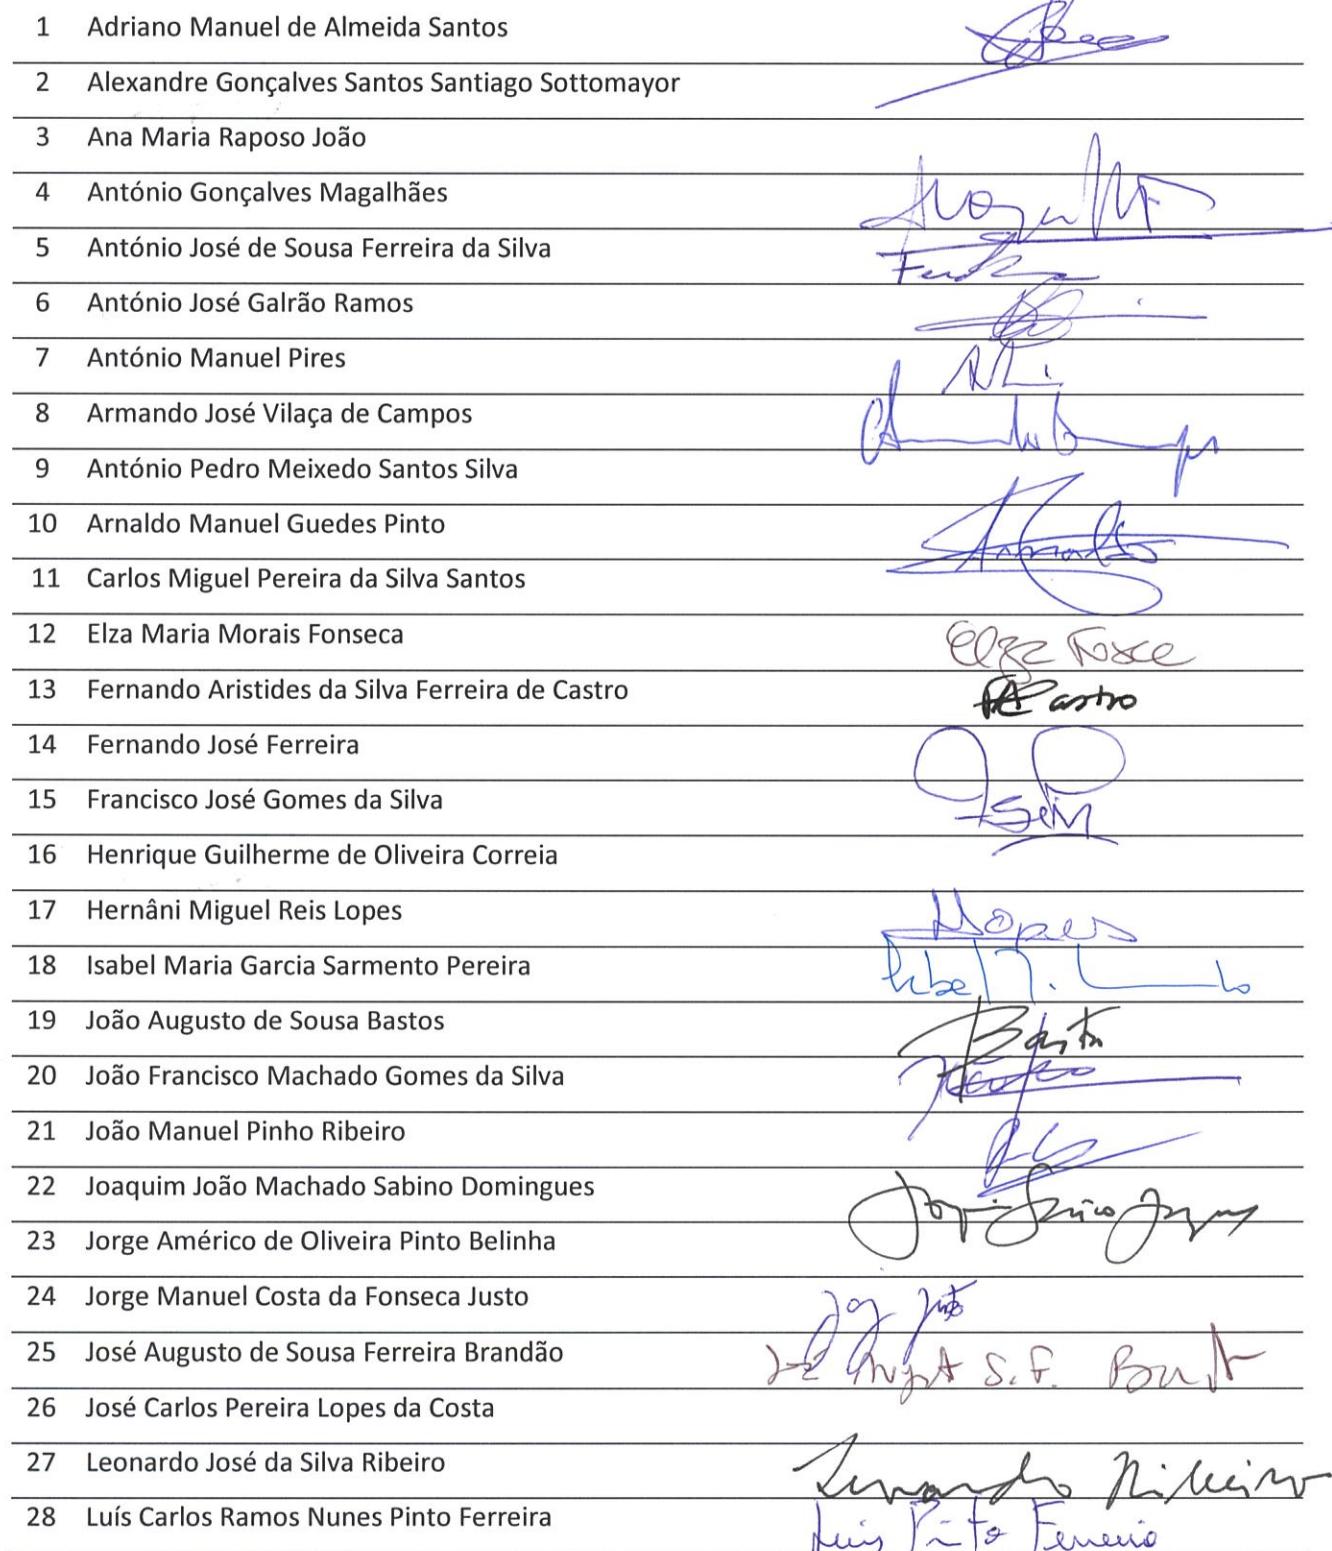 1 Adriano Manuel de Almeida Santos
2 Alexandre Gonçalves Santos Santiago Sottomayor
3 Ana Maria Raposo João
4 António Gonçalves Magalhães
5 António José de Sousa Ferreira da Silva
6 António José Galrão Ramos
7 António Manuel Pires
8 Armando José Vilaça de Campos
9 António Pedro Meixedo Santos Silva
10 Arnaldo Manuel Guedes Pinto
11 Carlos Miguel Pereira da Silva Santos
12 Elza Maria Morais Fonseca
13 Fernando Aristides da Silva Ferreira de Castro Castro
14 Fernando José Ferreira
15 Francisco José Gomes da Silva
16 Henrique Guilherme de Oliveira Correia
17 Hernâni Miguel Reis Lopes Lopes
18 Isabel Maria Garcia Sarmento Pereira
19 João Augusto de Sousa Bastos
20 João Francisco Machado Gomes da Silva
21 João Manuel Pinho Ribeiro
22 Joaquim João Machado Sabino Domingues
23 Jorge Américo de Oliveira Pinto Belinha
24 Jorge Manuel Costa da Fonseca Justo
25 José Augusto de Sousa Ferreira Brandão S.F.
26 José Carlos Pereira Lopes da Costa
27 Leonardo José da Silva Ribeiro Leonardo Ribeiro
28 Luís Carlos Ramos Nunes Pinto Ferreira Luís Pinto Ferreira